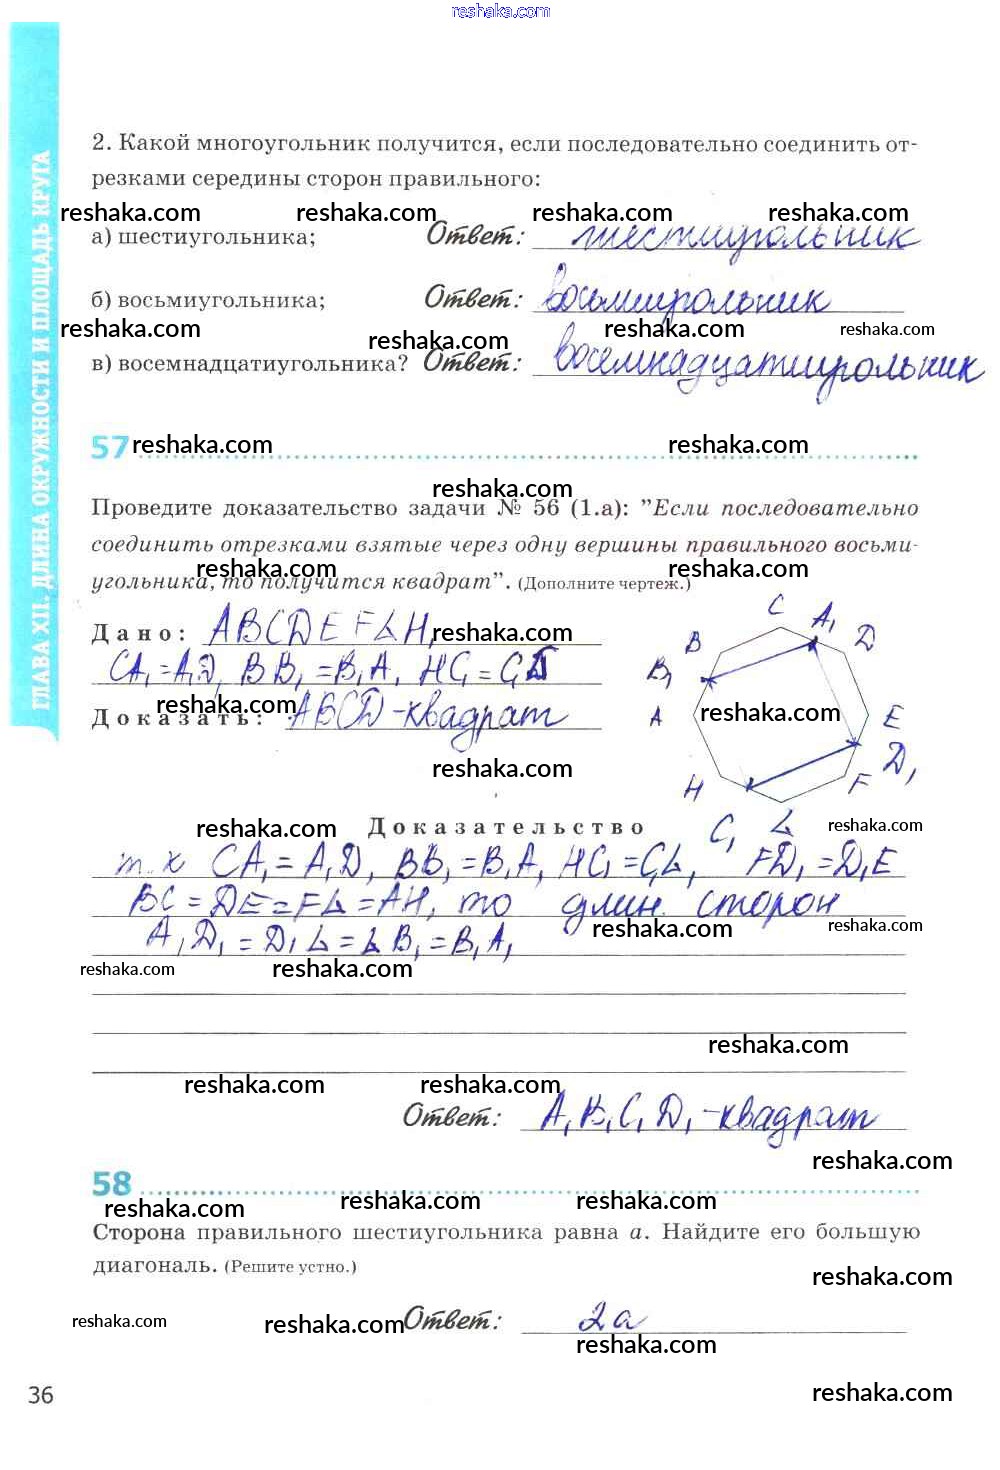 reshaka.com
ГЛАВА XII. ДЛИНА ОКРУЖНОСТИ И ПЛОЩАДЬ КРУГА
2. Какой многоугольник получится, если последовательно соединить от-
резками середины сторон правильного:
reshaka.com reshaka.com reshaka.com reshaka.com
а) шестиугольника; Ответ: шестиугольник
б) восьмиугольника; Ответ: восьмиугольник
reshaka.com reshaka.com reshaka.com reshaka.com
в) восемнадцатиугольника? Ответ: восемнадцатиугольник
57 reshaka.com reshaka.com
reshaka.com
Проведите доказательство задачи № 56 (1.а): "Если последовательно
соединить отрезками взятые через одну вершины правильного восьми-
reshaka.com reshaka.com
угольника, то получится квадрат". (Дополните чертеж.)
Дано: ABCDEF H, reshaka.com
CA₁=A₁D, BB₁=B₁A, HC₁=C₁
reshaka.com
Доказать: ABCD-квадрат
reshaka.com
C A₁ D
B
B₁
A reshaka.com E
D₁
H F
C₁ L
reshaka.com Доказательство reshaka.com
т.к CA₁=A₁D, BB₁=B₁A, HC₁=C₁L, FD₁=D₁E
BC=DE=FL=AH, то длин. сторон
reshaka.com reshaka.com
A₁D₁=D₁L=LB₁=B₁A₁
reshaka.com reshaka.com
reshaka.com
reshaka.com reshaka.com
Ответ: A₁B₁C₁D₁-квадрат
reshaka.com
58
reshaka.com reshaka.com reshaka.com
Сторона правильного шестиугольника равна a. Найдите его большую
диагональ. (Решите устно.)
reshaka.com
reshaka.com reshaka.com Ответ: 2a
reshaka.com
36 reshaka.com